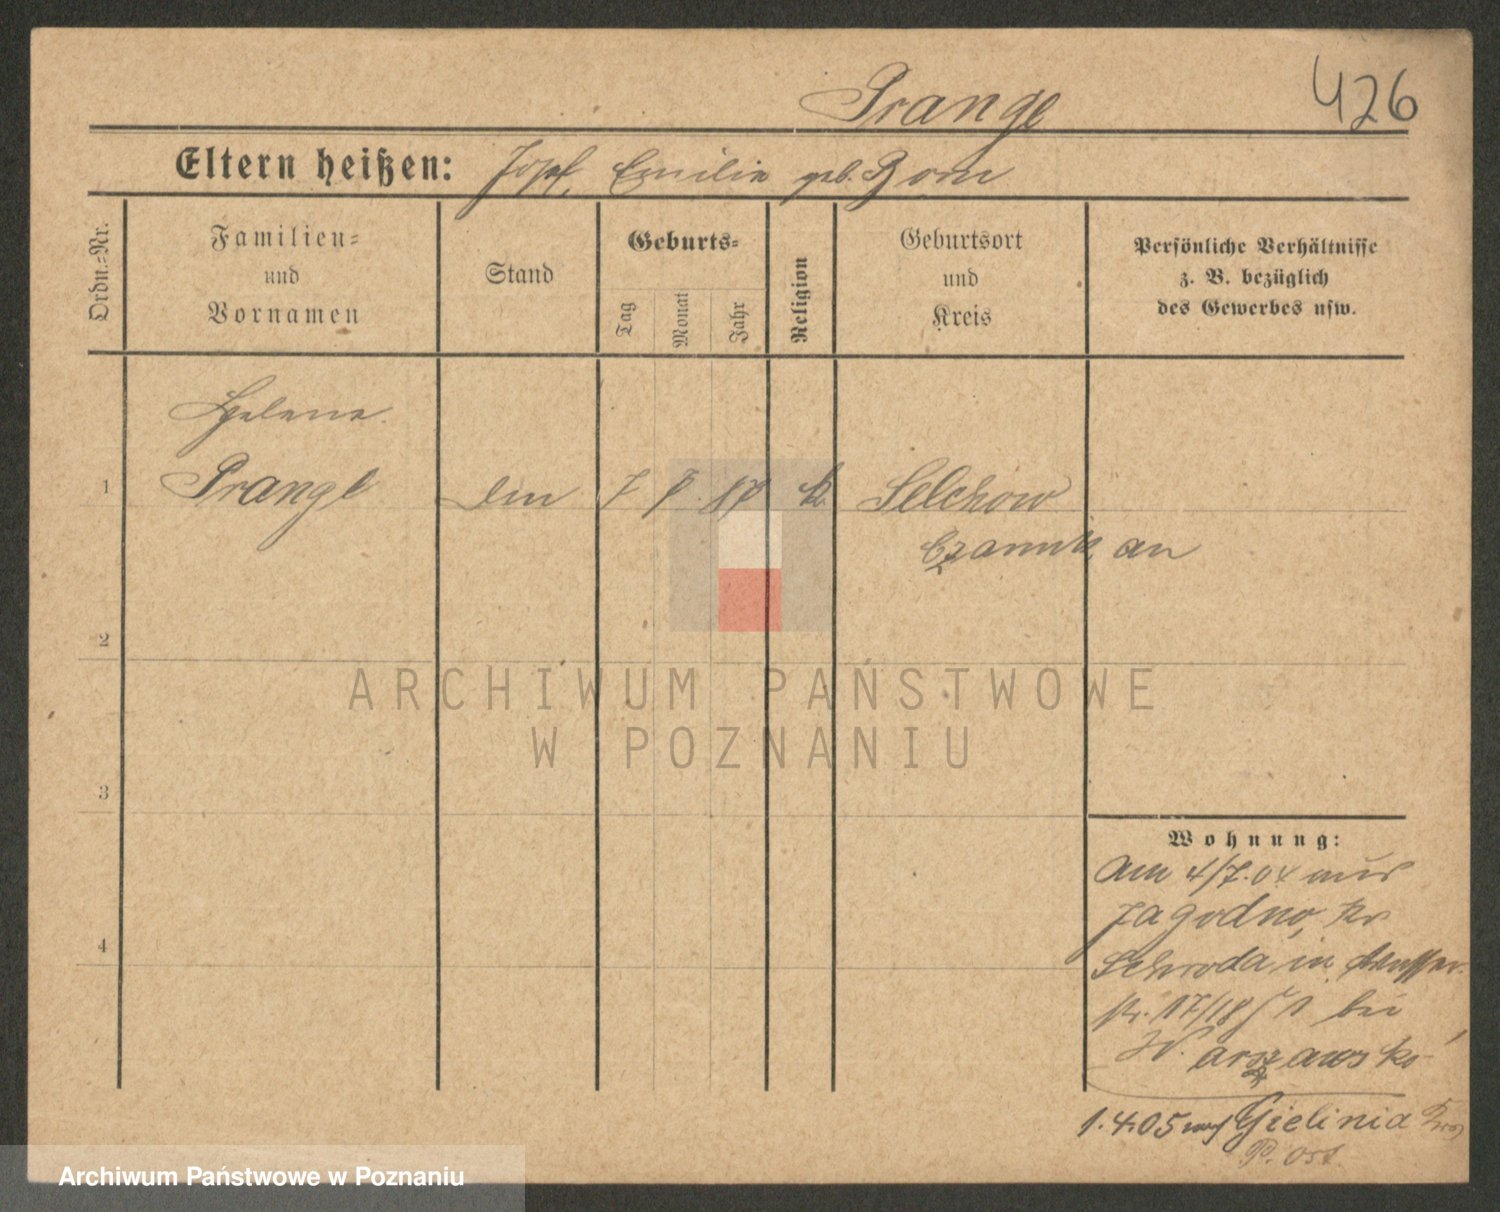 Prange
426
Eltern heißen: Josef, Emilie geb.
Ordn.-Nr.
Familien-
und
Vornamen
Stand
Geburts-
Tag
Monat
Jahr
Religion
Geburtsort
und
Kreis
Persönliche Verhältnisse
z. B. bezüglich
des Gewerbes usw.
Helene
1 Prange 7 87 k. Selchow
Czarnikau
2
3
4
Wohnung:
Am 4/7.04 aus
Jagodno, Kr
Schroda in
17/18 bei
Warzawski
1.4.05 nach
P. Ost
ARCHIWUM PAŃSTWOWE
W POZNANIU
Archiwum Państwowe w Poznaniu